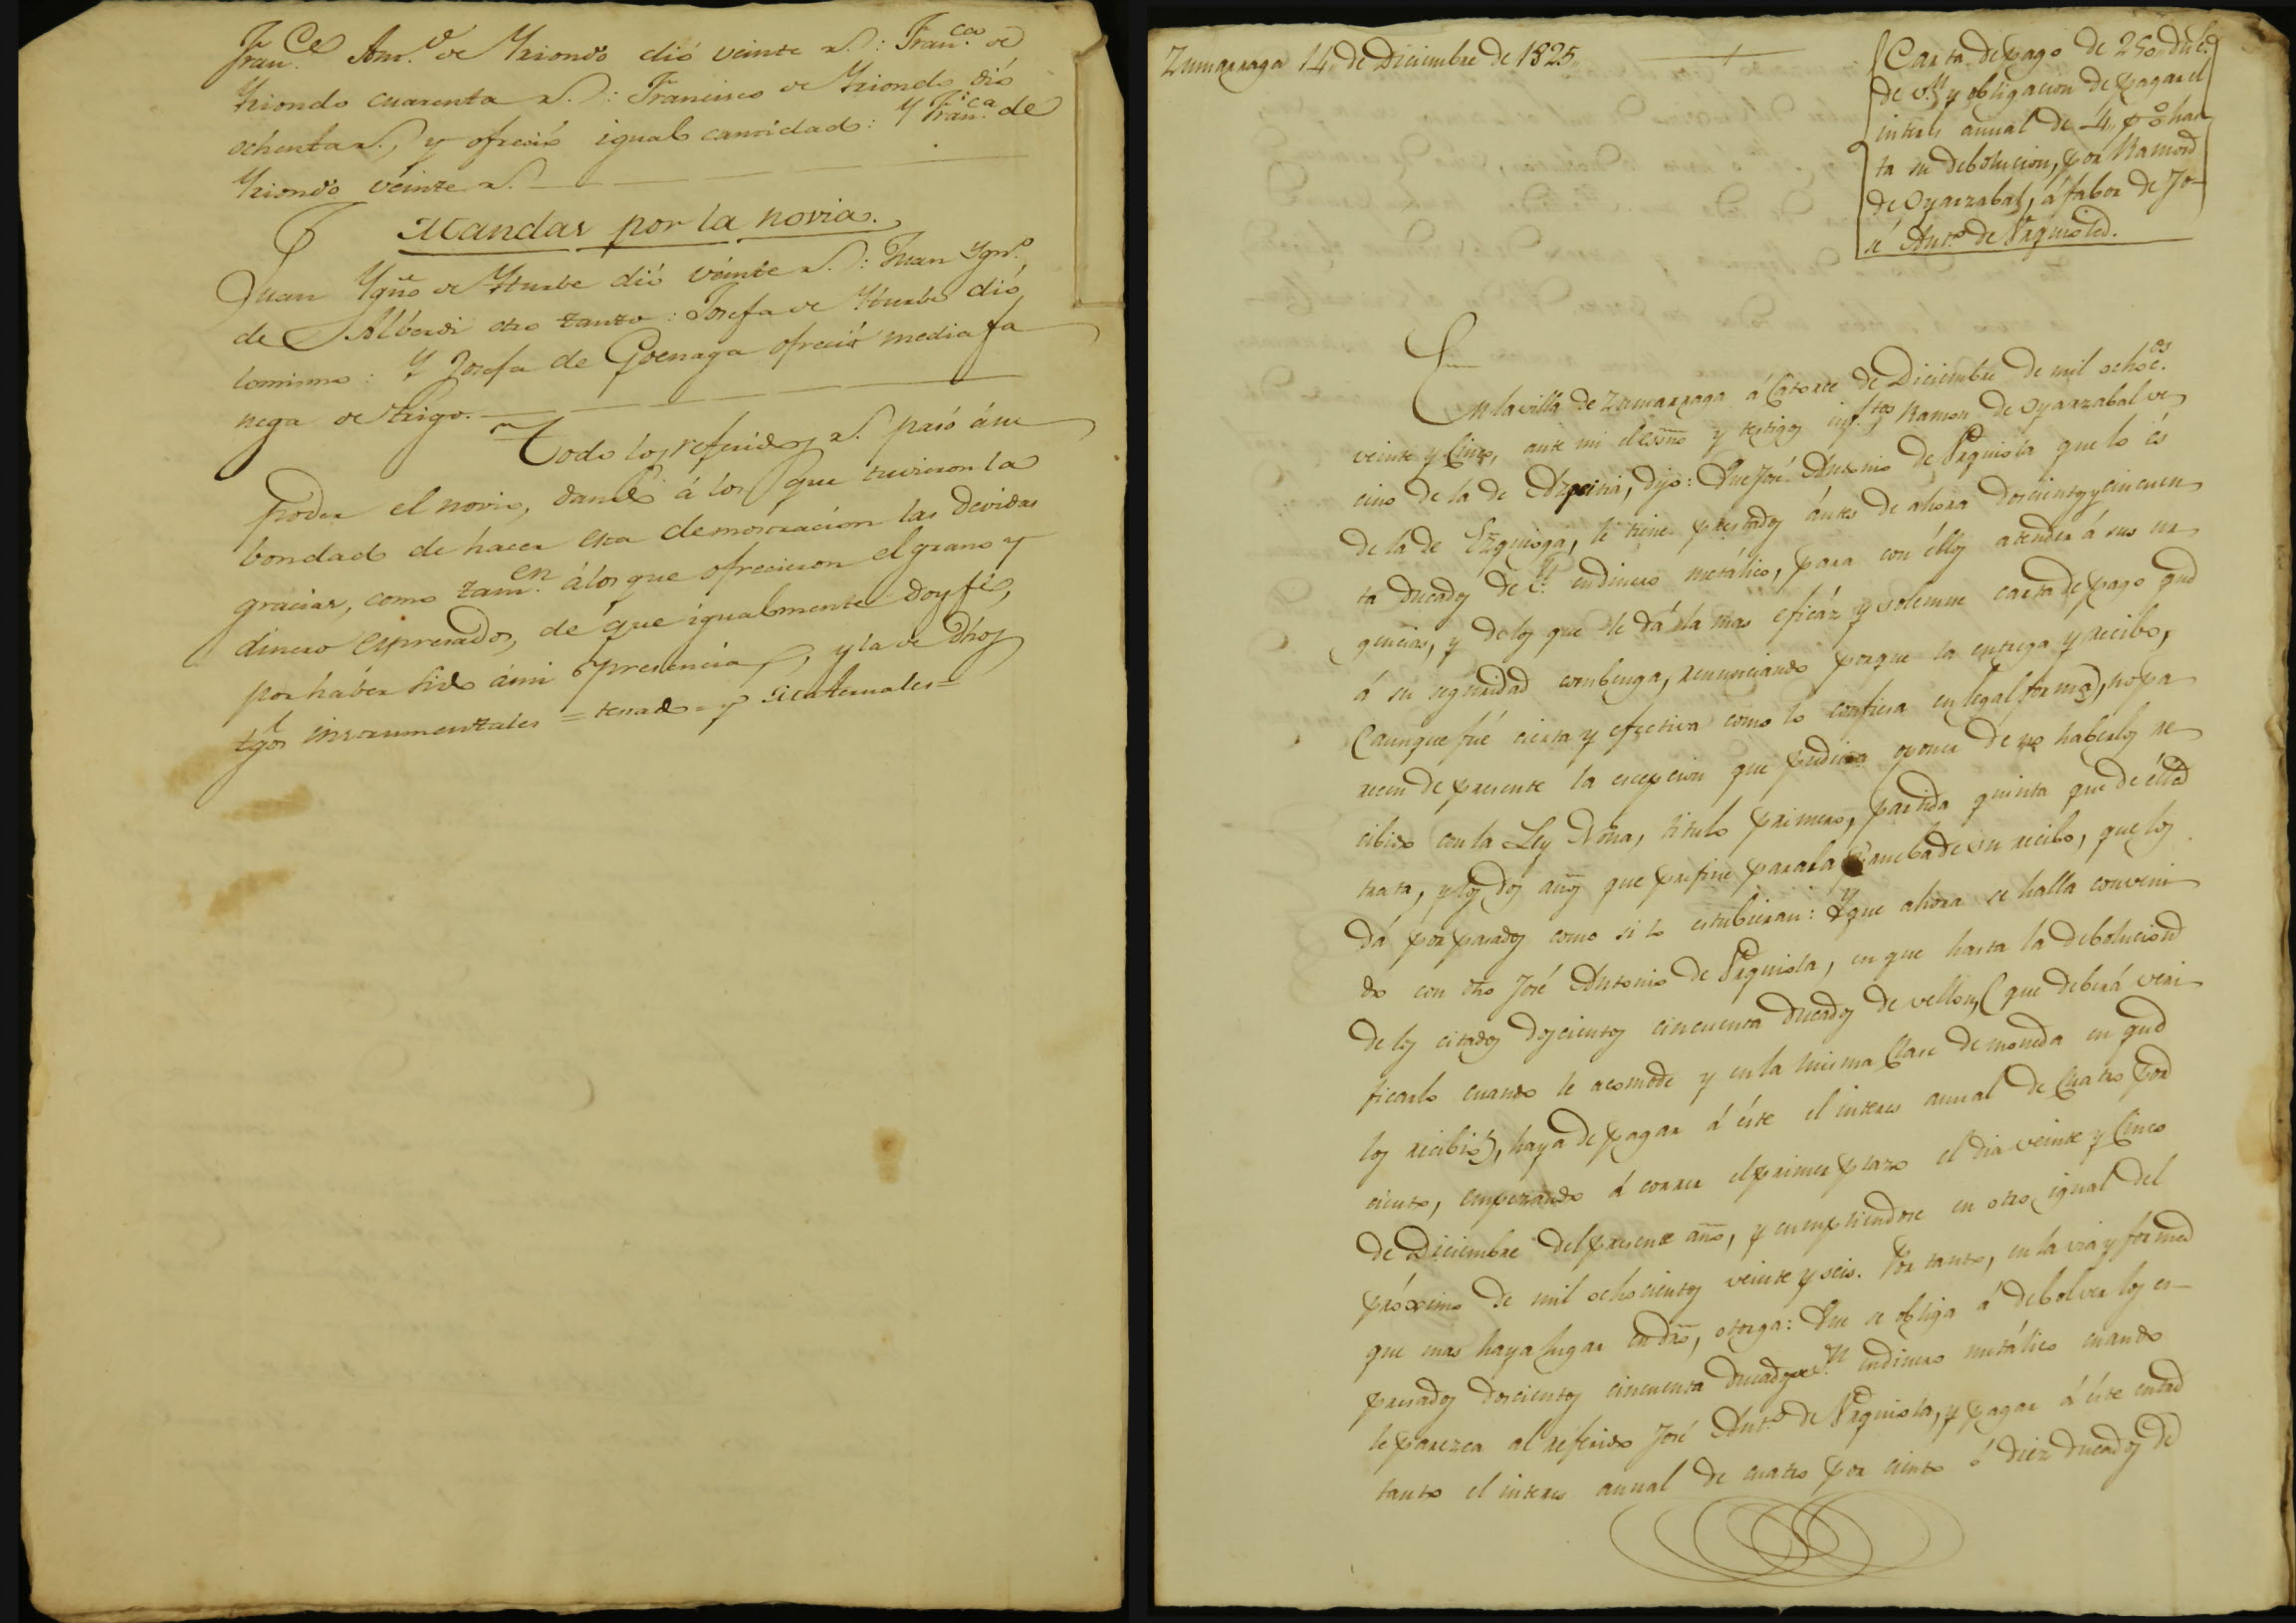 Fran.ce Ant.o de Yriondo dió veinte r.s: Fran.ca de
Yriondo cuarenta r.s: Francisco de Yriondo dió
ochenta r.s, y ofreció igual cantidad: Y Fran.ca de
Yriondo veinte r.s
Mandas por la novia.
Juan Ygn.o de Yturbe dió veinte r.s: Juan Ygn.o
de Alberdi otro tanto: Josefa de Yturbe dió
lo mismo: Y Josefa de Goenaga ofreció media fa
nega de trigo.
Todo los referidos r.s pasó á su
poder el novio, dando á los que tuvieron la
bondad de hacer esta demostracion las devidas
gracias, como tam.en á los que ofrecieron el grano y
dinero expresados, de que igualmente doy fé,
por haber sido á mi presencia, y la de dhos
tgos instrumentales = testado = y
Zumarraga 14, de Diciembre de 1825
Carta de pago de 250 duc.s
de v.n y obligacion de pagar el
interes annual de 4, p% has
ta su debolucion, por Ramon
de Oyarzabal, á fabor de Jo-
sé Ant.o de Urquiola.
En la villa de Zumarraga á Catorce de Diciembre de mil ochoc.os
veinte y Cinco, ante mi el esno y testigos inf.tos Ramon de Oyarzabal ve
cino de la de Azpeitia, dijo: Que José Antonio de Urquiola que lo és
de la de Ezquioga, le tiene prestados ántes de ahora doscientos y cincuen
ta ducados de v.n en dinero metálico, para con éllos atender á sus ur
gencias, y de los que le dá la mas eficáz y solemne carta de pago que
á su seguridad combenga, renunciando porque la entrega y recibo,
(aunque fué cierta y efectiva como lo confiesa en legal forma), no pa
recen de presente la escepcion que pudiera oponer de no haberlos re
cibido con la Ley Nona, titulo primero, partida quinta que de élla
trata, y los dos años que prefine para la prueba de su recibo, que los
dá por pasados como si lo estubieran: Y que ahora se halla conveni
do con dho José Antonio de Urquiola, en que hasta la debolucion
de los citados doscientos cincuenta ducados de vellon, (que deberá veri
ficarlo cuando le acomode y en la misma Clase de moneda en que
los recibió), haya de pagar á éste el interes annual de Cuatro por
ciento, empezando á correr el primer plazo el dia veinte y Cinco
de Diciembre del presente año, y cumpliendose en otro igual del
próximo de mil ochocientos veinte y seis. Por tanto, en la via y forma
que mas haya lugar en dro, otorga: Que se obliga á debolver los es-
presados doscientos cincuenta ducados de v.n en dinero metálico cuando
le parezca al referido José Ant.o de Urquiola, y pagar á éste entre
tanto el interes annual de cuatro por ciento ó diez ducados de